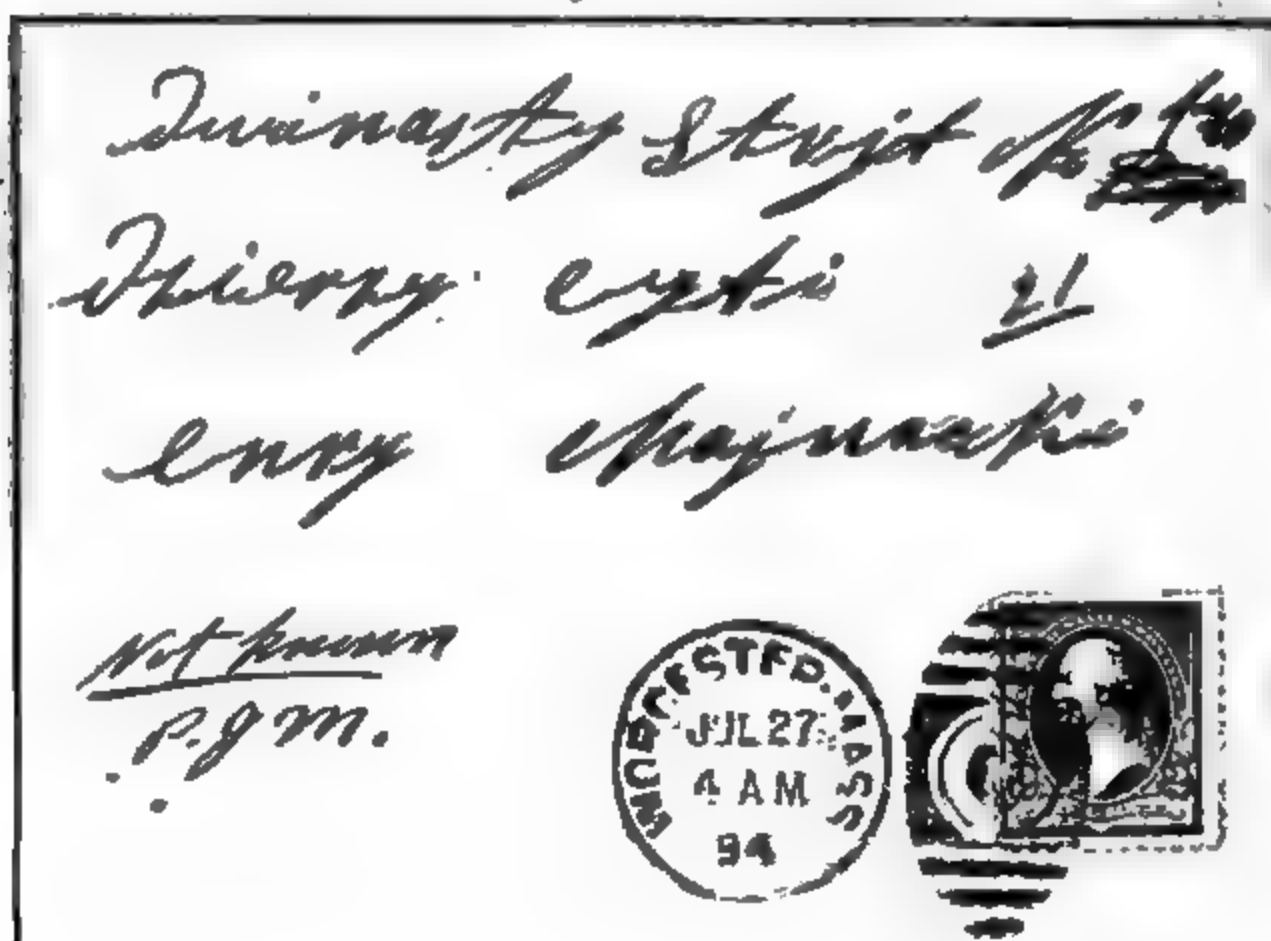 Dwinasty Strjt No
Dzierzy Cyti 21
enry chajnaski
Not known
P. J M.
WORCESTER. MASS
JUL 27
4 AM
94